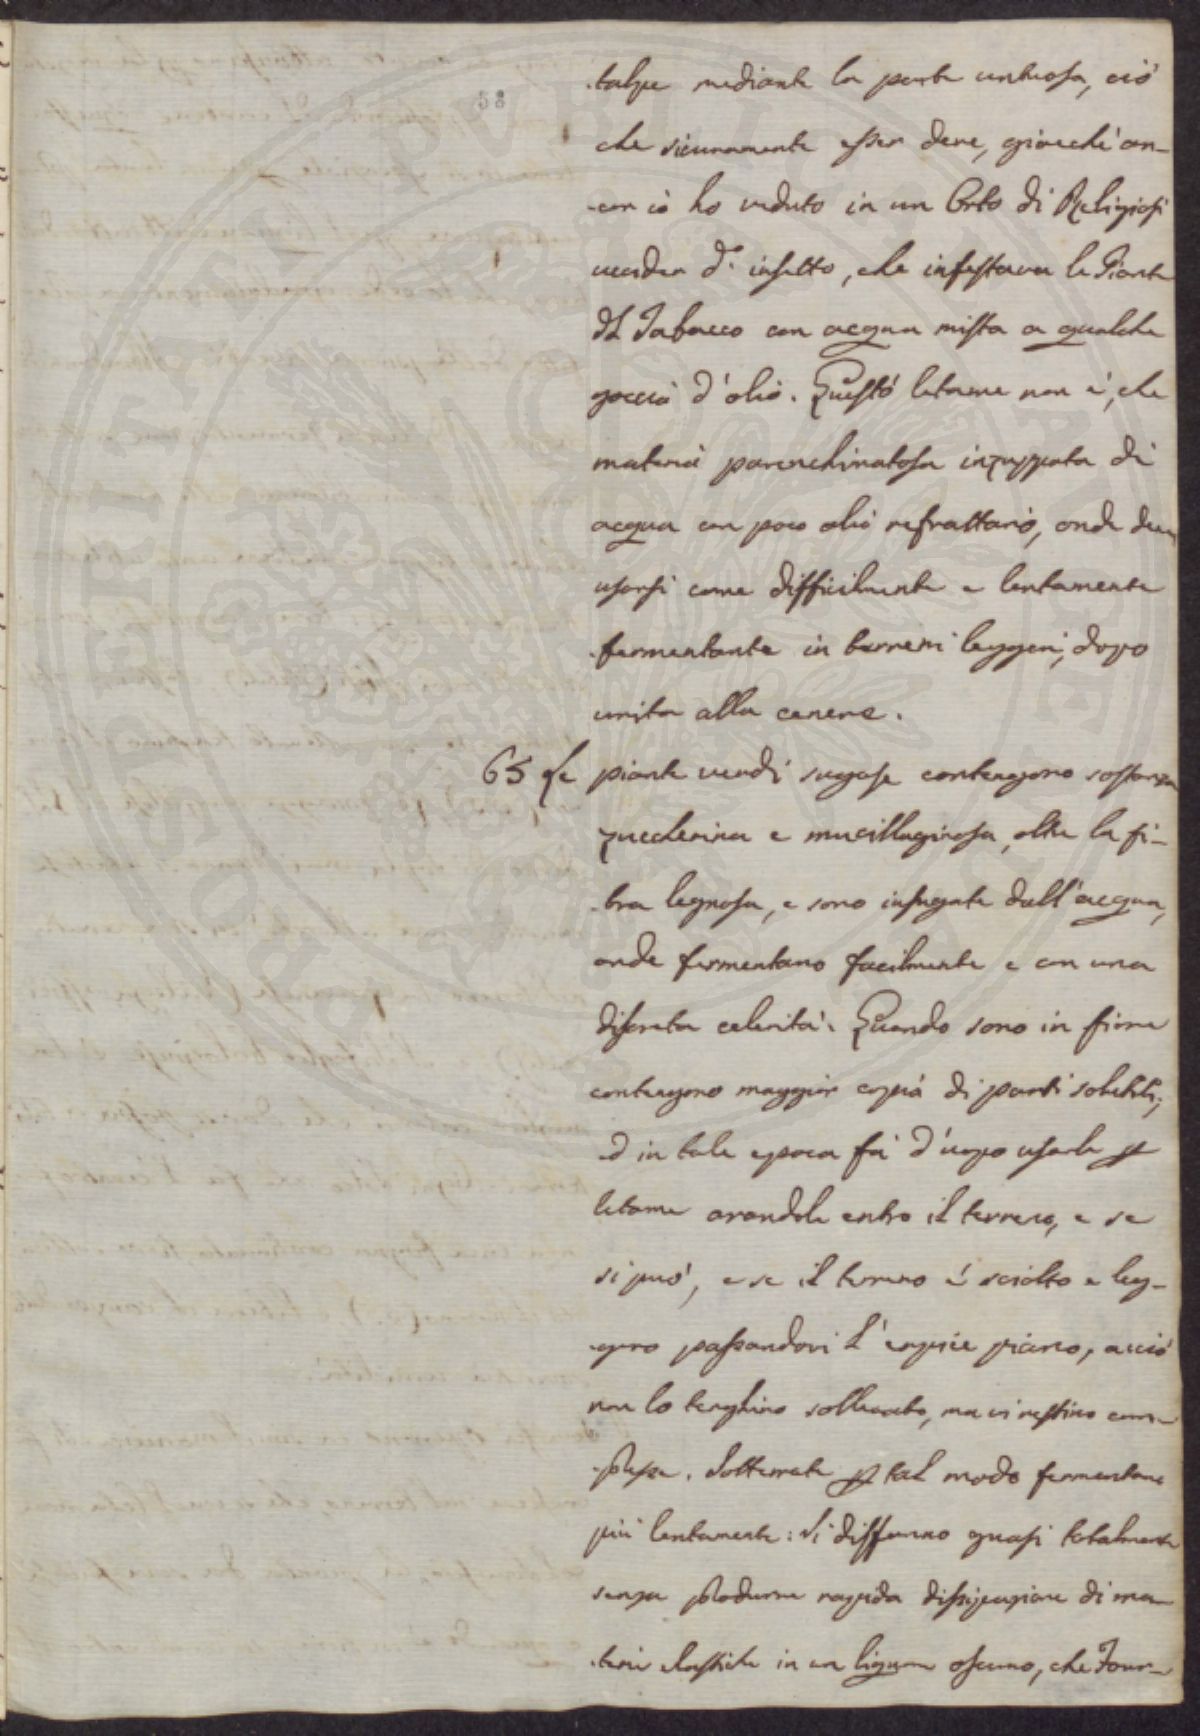 58
talpe mediante la parte untuosa, ciò
che sicuramente esser deve, giacchè an-
cor io ho veduto in un Orto di Religiosi
uccider d.º insetto, che infestava le Piante
del Tabacco con acqua mista a qualche
goccia d'olio. Questo letame non è, che
materia parenchimatosa inzuppata di
acqua con poco olio refrattario, onde deve
usarsi come difficilmente e lentamente
fermentante in terreni leggeri, dopo
unita alla cenere.
65 Le piante verdi sugose contengono sostanza
zuccherina e mucillaginosa, oltre la fi-
bra legnosa, e sono insugate dall'acqua,
onde fermentano facilmente e con una
discreta celerità. Quando sono in fiore
contengono maggior copia di parti solubili;
ed in tale epoca fà d'uopo usarle p
letame arandole entro il terreno, e se
si può, e se il terreno è sciolto e leg-
gero passandovi l'erpice piano, acciò
non lo tenghino sollevato, ma vi restino com-
presse. Sotterrate p tal modo fermentano
più lentamente: Si disfanno quasi totalmente
senza produrre rapida dissipazione di ma-
terie elastiche in un liquore oscuro, che Four-